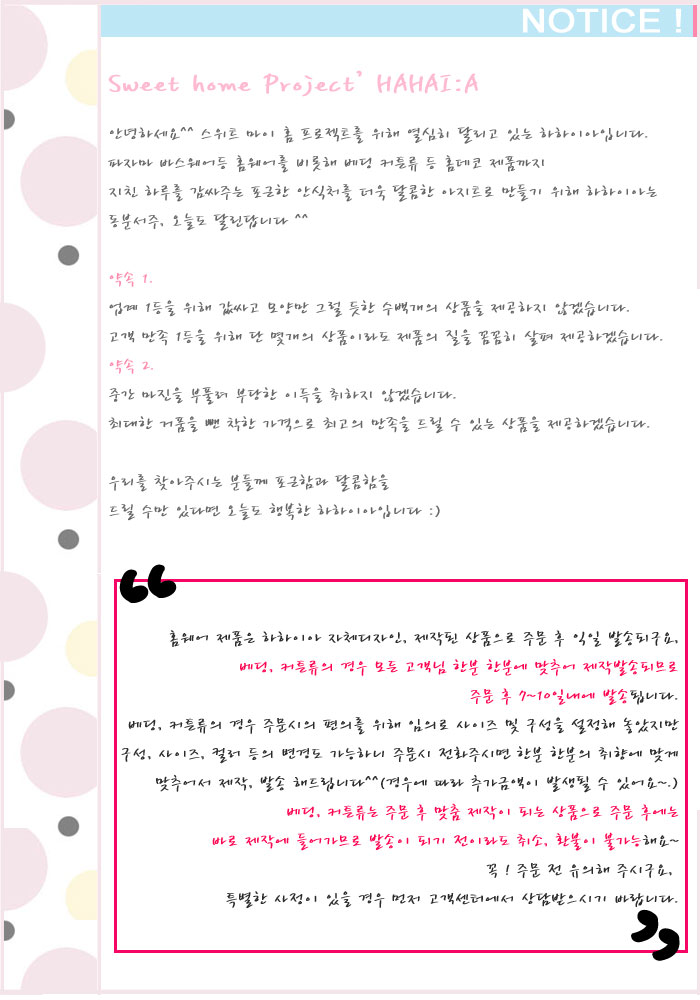 NOTICE !
Sweet home Project' HAHAI:A
안녕하세요^^ 스위트 마이 홈 프로젝트를 위해 열심히 달리고 있는 하하이아입니다.
파자마 바스웨어등 홈웨어를 비롯해 베딩 커튼류 등 홈데코 제품까지
지친 하루를 감싸주는 포근한 안식처를 더욱 달콤한 아지트로 만들기 위해 하하이아는
동분서주, 오늘도 달린답니다 ^^
약속 1.
업계 1등을 위해 값싸고 모양만 그럴 듯한 수백개의 상품을 제공하지 않겠습니다.
고객 만족 1등을 위해 단 몇개의 상품이라도 제품의 질을 꼼꼼히 살펴 제공하겠습니다.
약속 2.
중간 마진을 부풀려 부당한 이득을 취하지 않겠습니다.
최대한 거품을 뺀 착한 가격으로 최고의 만족을 드릴 수 있는 상품을 제공하겠습니다.
우리를 찾아주시는 분들께 포근함과 달콤함을
드릴 수만 있다면 오늘도 행복한 하하이아입니다 :)
홈웨어 제품은 하하이아 자체디자인, 제작된 상품으로 주문 후 익일 발송되구요,
베딩, 커튼류의 경우 모든 고객님 한분 한분에 맞추어 제작발송되므로
주문 후 7~10일내에 발송됩니다.
베딩, 커튼류의 경우 주문시의 편의를 위해 임의로 사이즈 및 구성을 설정해 놓았지만
구성, 사이즈, 컬러 등의 변경도 가능하니 주문시 전화주시면 한분 한분의 취향에 맞게
맞추어서 제작, 발송 해드립니다^^(경우에 따라 추가금액이 발생될 수 있어요~.)
베딩, 커튼류는 주문 후 맞춤 제작이 되는 상품으로 주문 후에는
바로 제작에 들어가므로 발송이 되기 전이라도 취소, 환불이 불가능해요~
꼭 ! 주문 전 유의해 주시구요,
특별한 사정이 있을 경우 먼저 고객센터에서 상담받으시기 바랍니다.